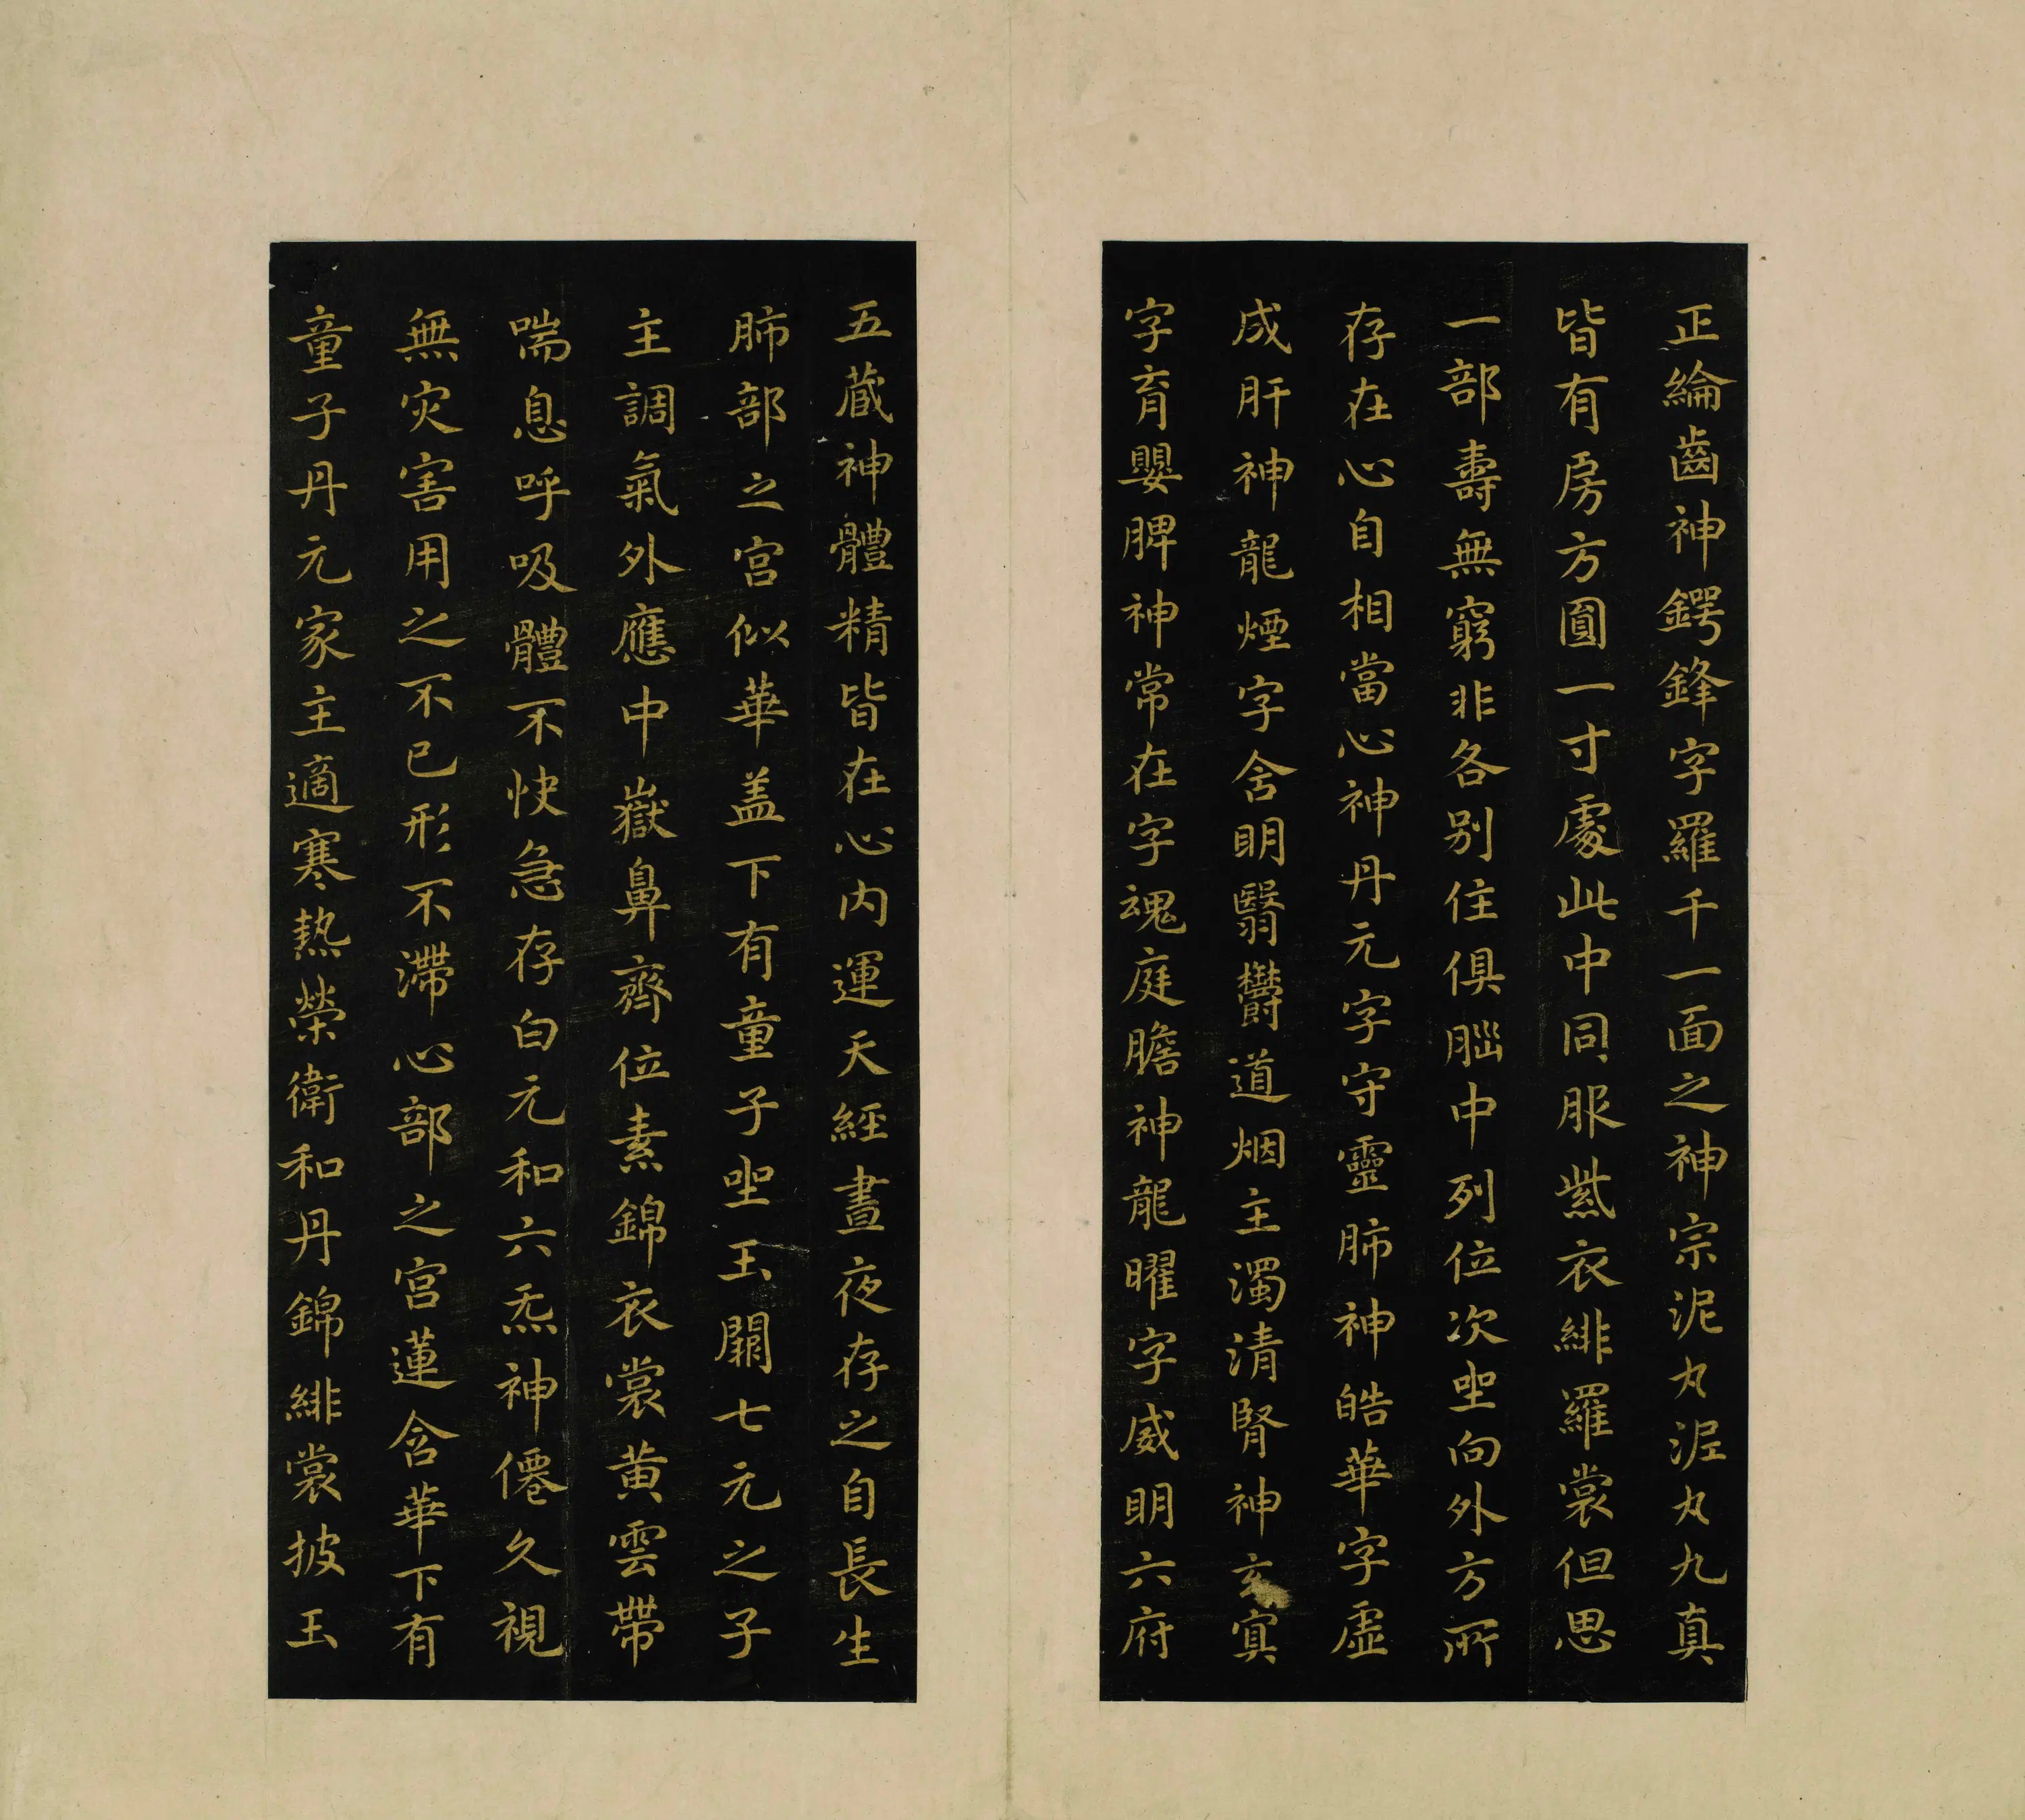 正綸齒神鍔鋒字羅千一面之神宗泥丸泥丸九真
皆有房方圓一寸處此中同服紫衣緋羅裳但思
一部壽無窮非各別住俱腦中列位次坐向外方所
存在心自相當心神丹元字守靈肺神皓華字虛
成肝神龍煙字含明翳鬱道烟主濁清腎神玄冥
字育嬰脾神常在字魂庭膽神龍曜字威明六府
五藏神體精皆在心内運天經晝夜存之自長生
肺部之宮似華盖下有童子坐玉闕七元之子
主調氣外應中嶽鼻齊位素錦衣裳黃雲帶
喘息呼吸體不快急存白元和六炁神僊久視
無灾害用之不已形不滯心部之宮蓮含華下有
童子丹元家主適寒熱榮衛和丹錦緋裳披玉